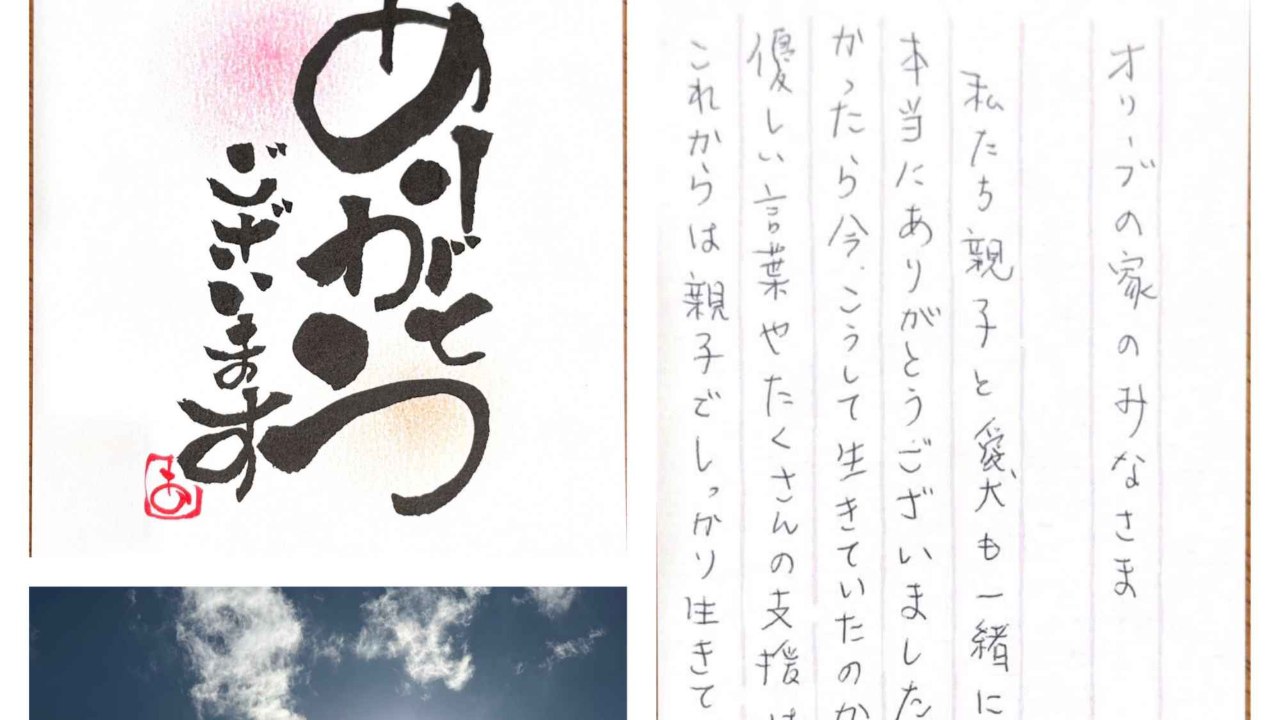 ありがとう
ございます
あ
オリーブの家のみなさま
私たち親子と愛犬も一緒に
本当にありがとうございました
かったら今、こうして生きていたのか
優しい言葉やたくさんの支援は
これからは親子でしっかり生きて